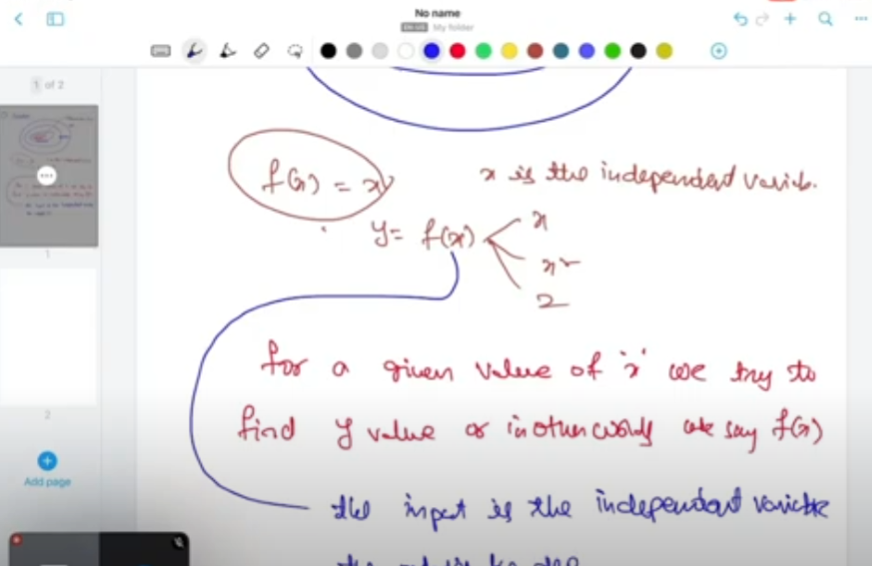 No name
EN US My folder
1 of 2
f(x) = x²
x is the independent variab.
y = f(x)
x
x²
2
for a given value of 'x' we try to
find y value or in other words we say f(x)
the input is the independent variable
1
2
Add page